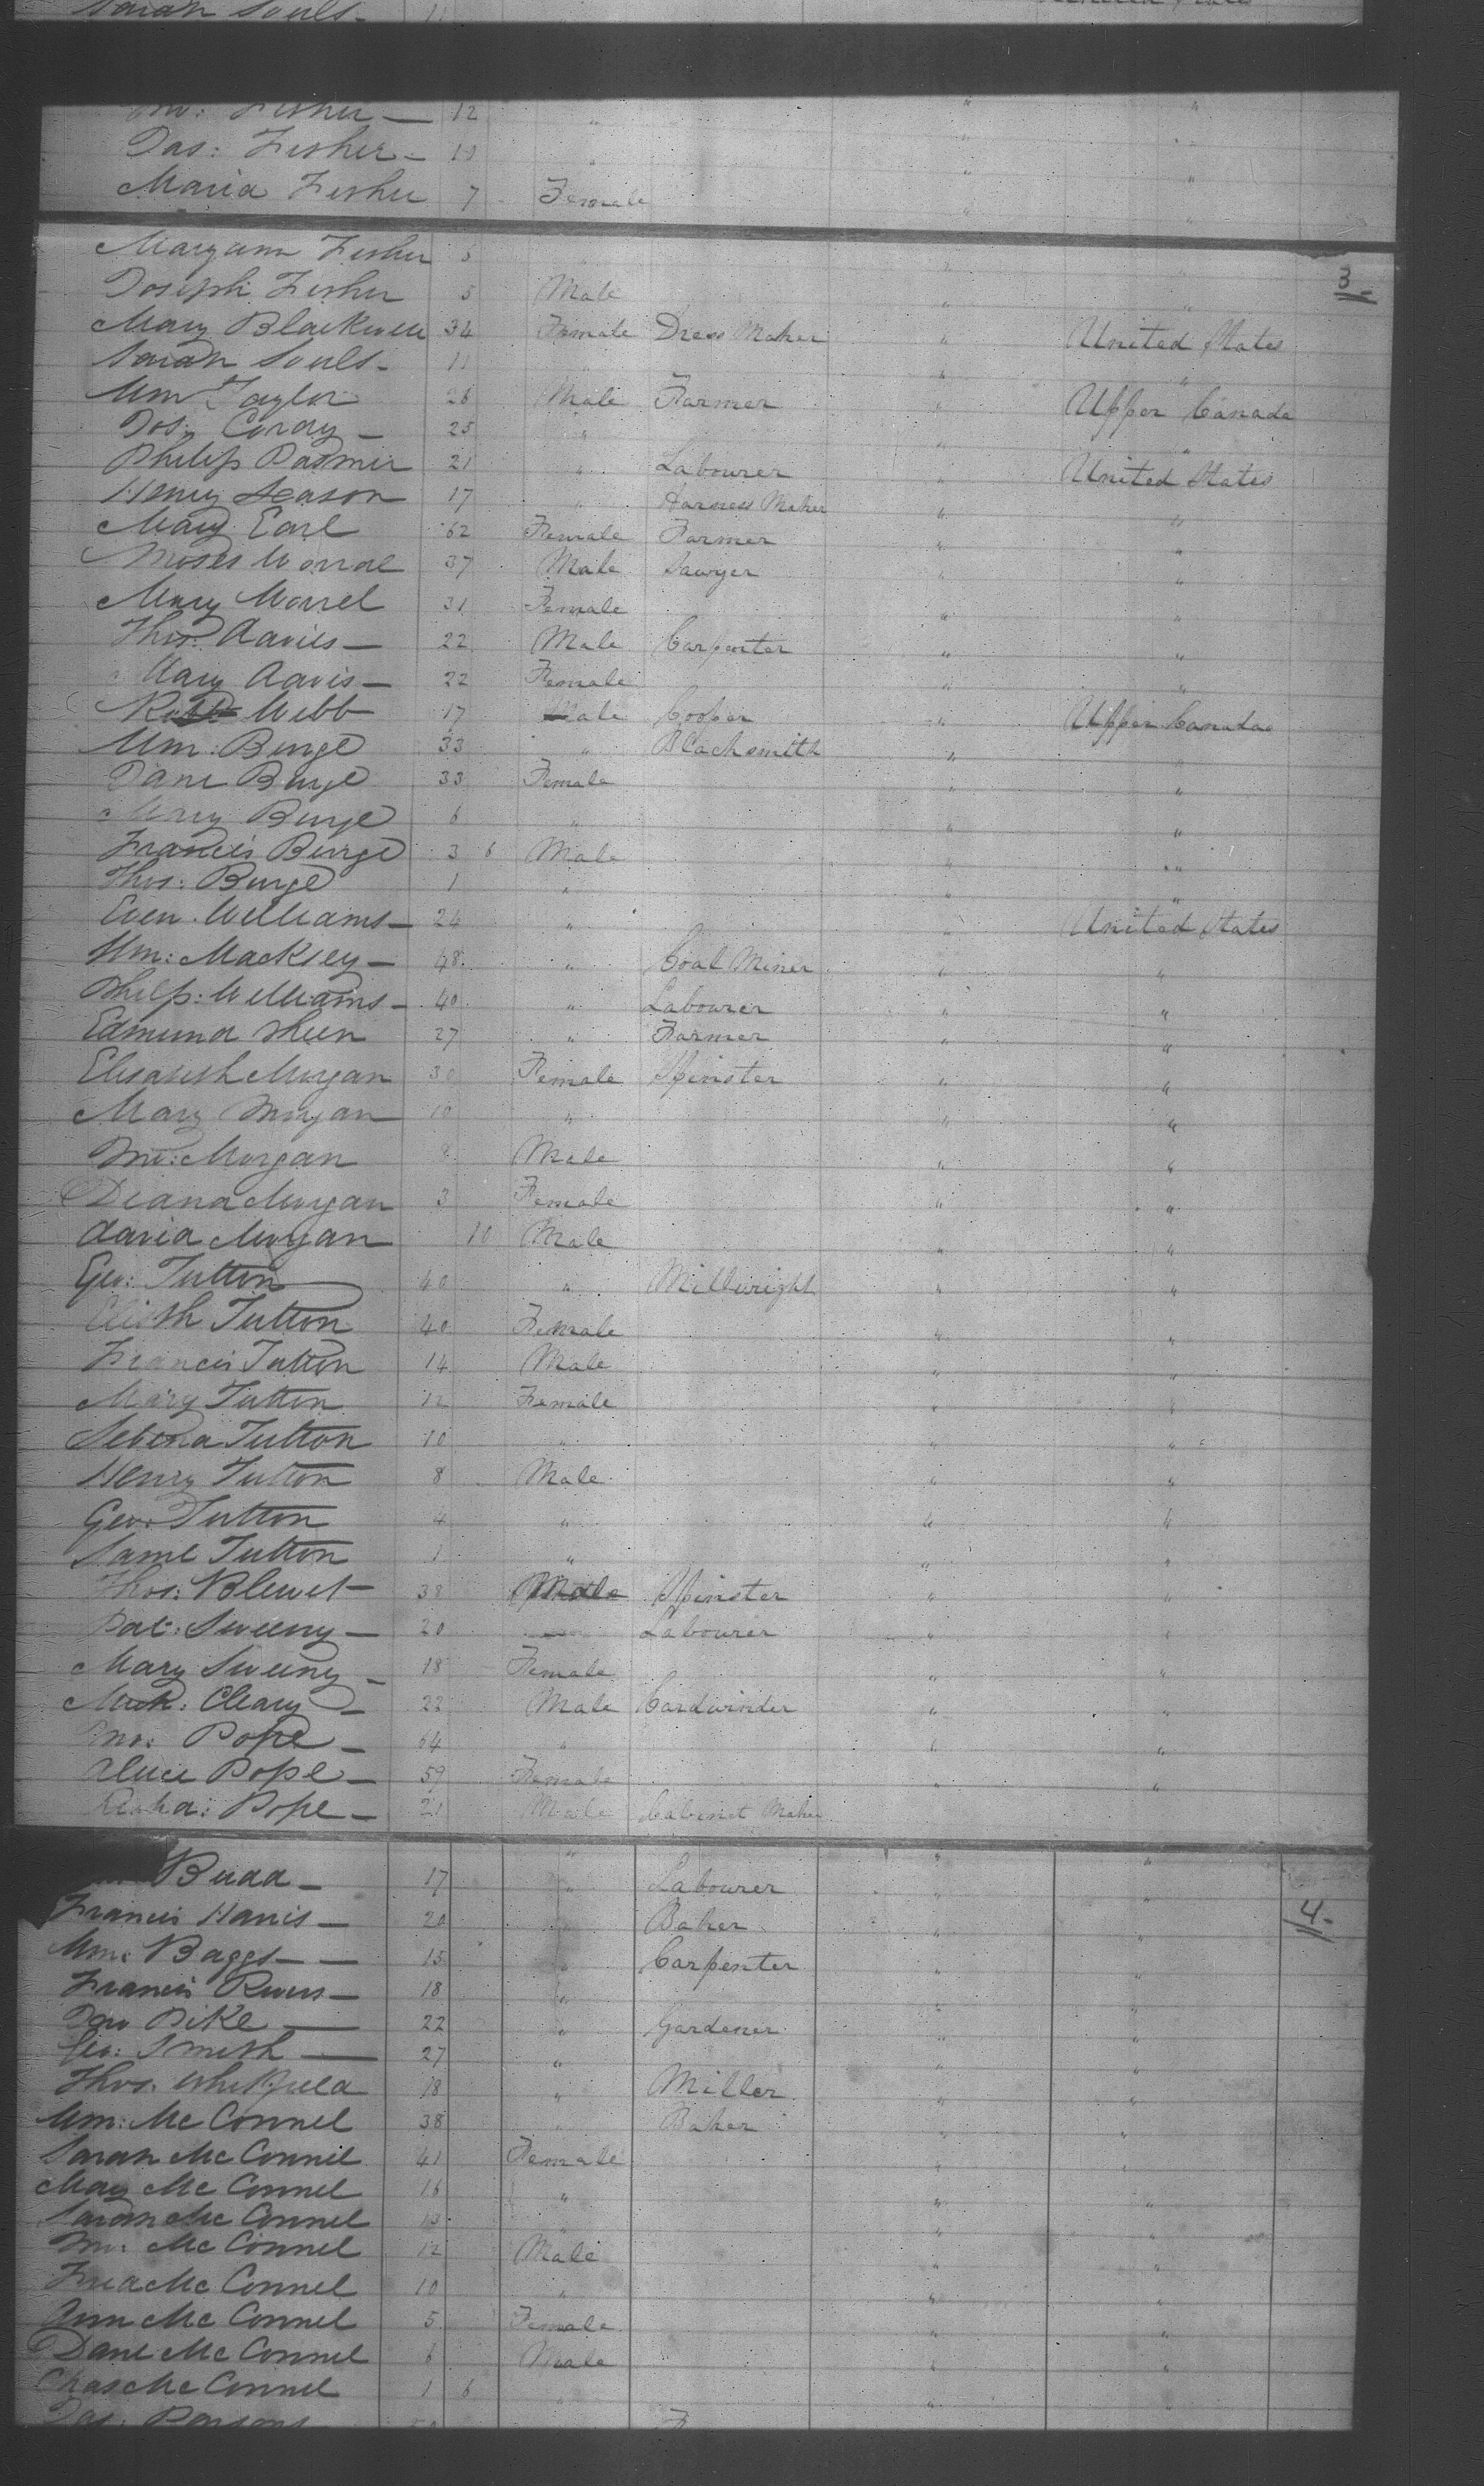 Sarah Souls - 11
Fisher - 12 " " "
Jas: Fisher - 10 " " "
Maria Fisher 7 Female " "
3
Maryann Fisher " "
Joseph Fisher 5 Male " "
Mary Blackwell 34 Female Dress Maker " United States
Sarah Souls - 11 " "
Wm Taylor 28 Male Farmer " Upper Canada
Jos; Cordy - 25 " " "
Philip Padmir 21 " Labourer " United States
Henry Season 17 " Harness Maker " "
Mary Earl 62 Female Farmer " "
Moses Worral 37 Male Sawyer " "
Mary Worrel 31 Female " "
Thos: Davies - 22 Male Carpenter " "
Mary Davis - 22 Female " "
Robt Webb 17 Male Cooper " Upper Canada
Wm: Burge 33 " Blacksmith " "
Jane Burge 33 Female " "
Mary Burge 6 " " "
Francis Burge 3 6 Male " "
Thos: Burge 1 " " "
Even Williams - 24 " " United States
Wm: Macksey - 48 " Coal Miner " "
Philp: Williams - 40 " Labourer " "
Edmund Sheen 27 " Farmer " "
Elisabeth Morgan 30 Female Spinster " "
Mary Morgan 10 " " "
Jno: Morgan 8 Male " "
Deana Morgan 3 Female " "
David Morgan 10 Male " "
Geo: Tutton 40 " Millwright " "
Elisth Tutton 40 Female " "
Francis Tutton 14 Male " "
Mary Tutton 12 Female " "
Sebena Tutton 10 " " "
Henry Tutton 8 Male " "
Geo: Tutton 4 " " "
Saml Tutton 1 " " "
Thos: Blewet - 38 Male Spinster " "
Pat: Sweeny - 20 Labourer " "
Mary Sweeny - 18 Female " "
Mich: Cleary - 22 Male Cardwinder " "
Jno: Pope - 64 " " "
Alice Pope - 59 Female " "
Pope - 21 Male Cabinet Maker " "
4-
Budd - 17 " Labourer " "
Francis Harris - 20 " Baker " "
Wm: Baggs - - 15 " Carpenter " "
Francis Rivers - 18 " " "
Jno Pike - 22 " Gardener " "
Geo: Smith - 27 " " "
Thos: Whitfield 18 " Miller " "
Wm: Mc Connel 38 " Baker " "
Sarah Mc Connel 41 Female " "
Mary Mc Connel 16 " " "
Sarah Mc Connel 13 " " "
Jno: Mc Connel 12 Male " "
Fred Mc Connel 10 " " "
Ann Mc Connel 5 Female " "
Danl Mc Connel 6 Male " "
Chas Mc Connel 1 6 " " "
Jas: Parsons